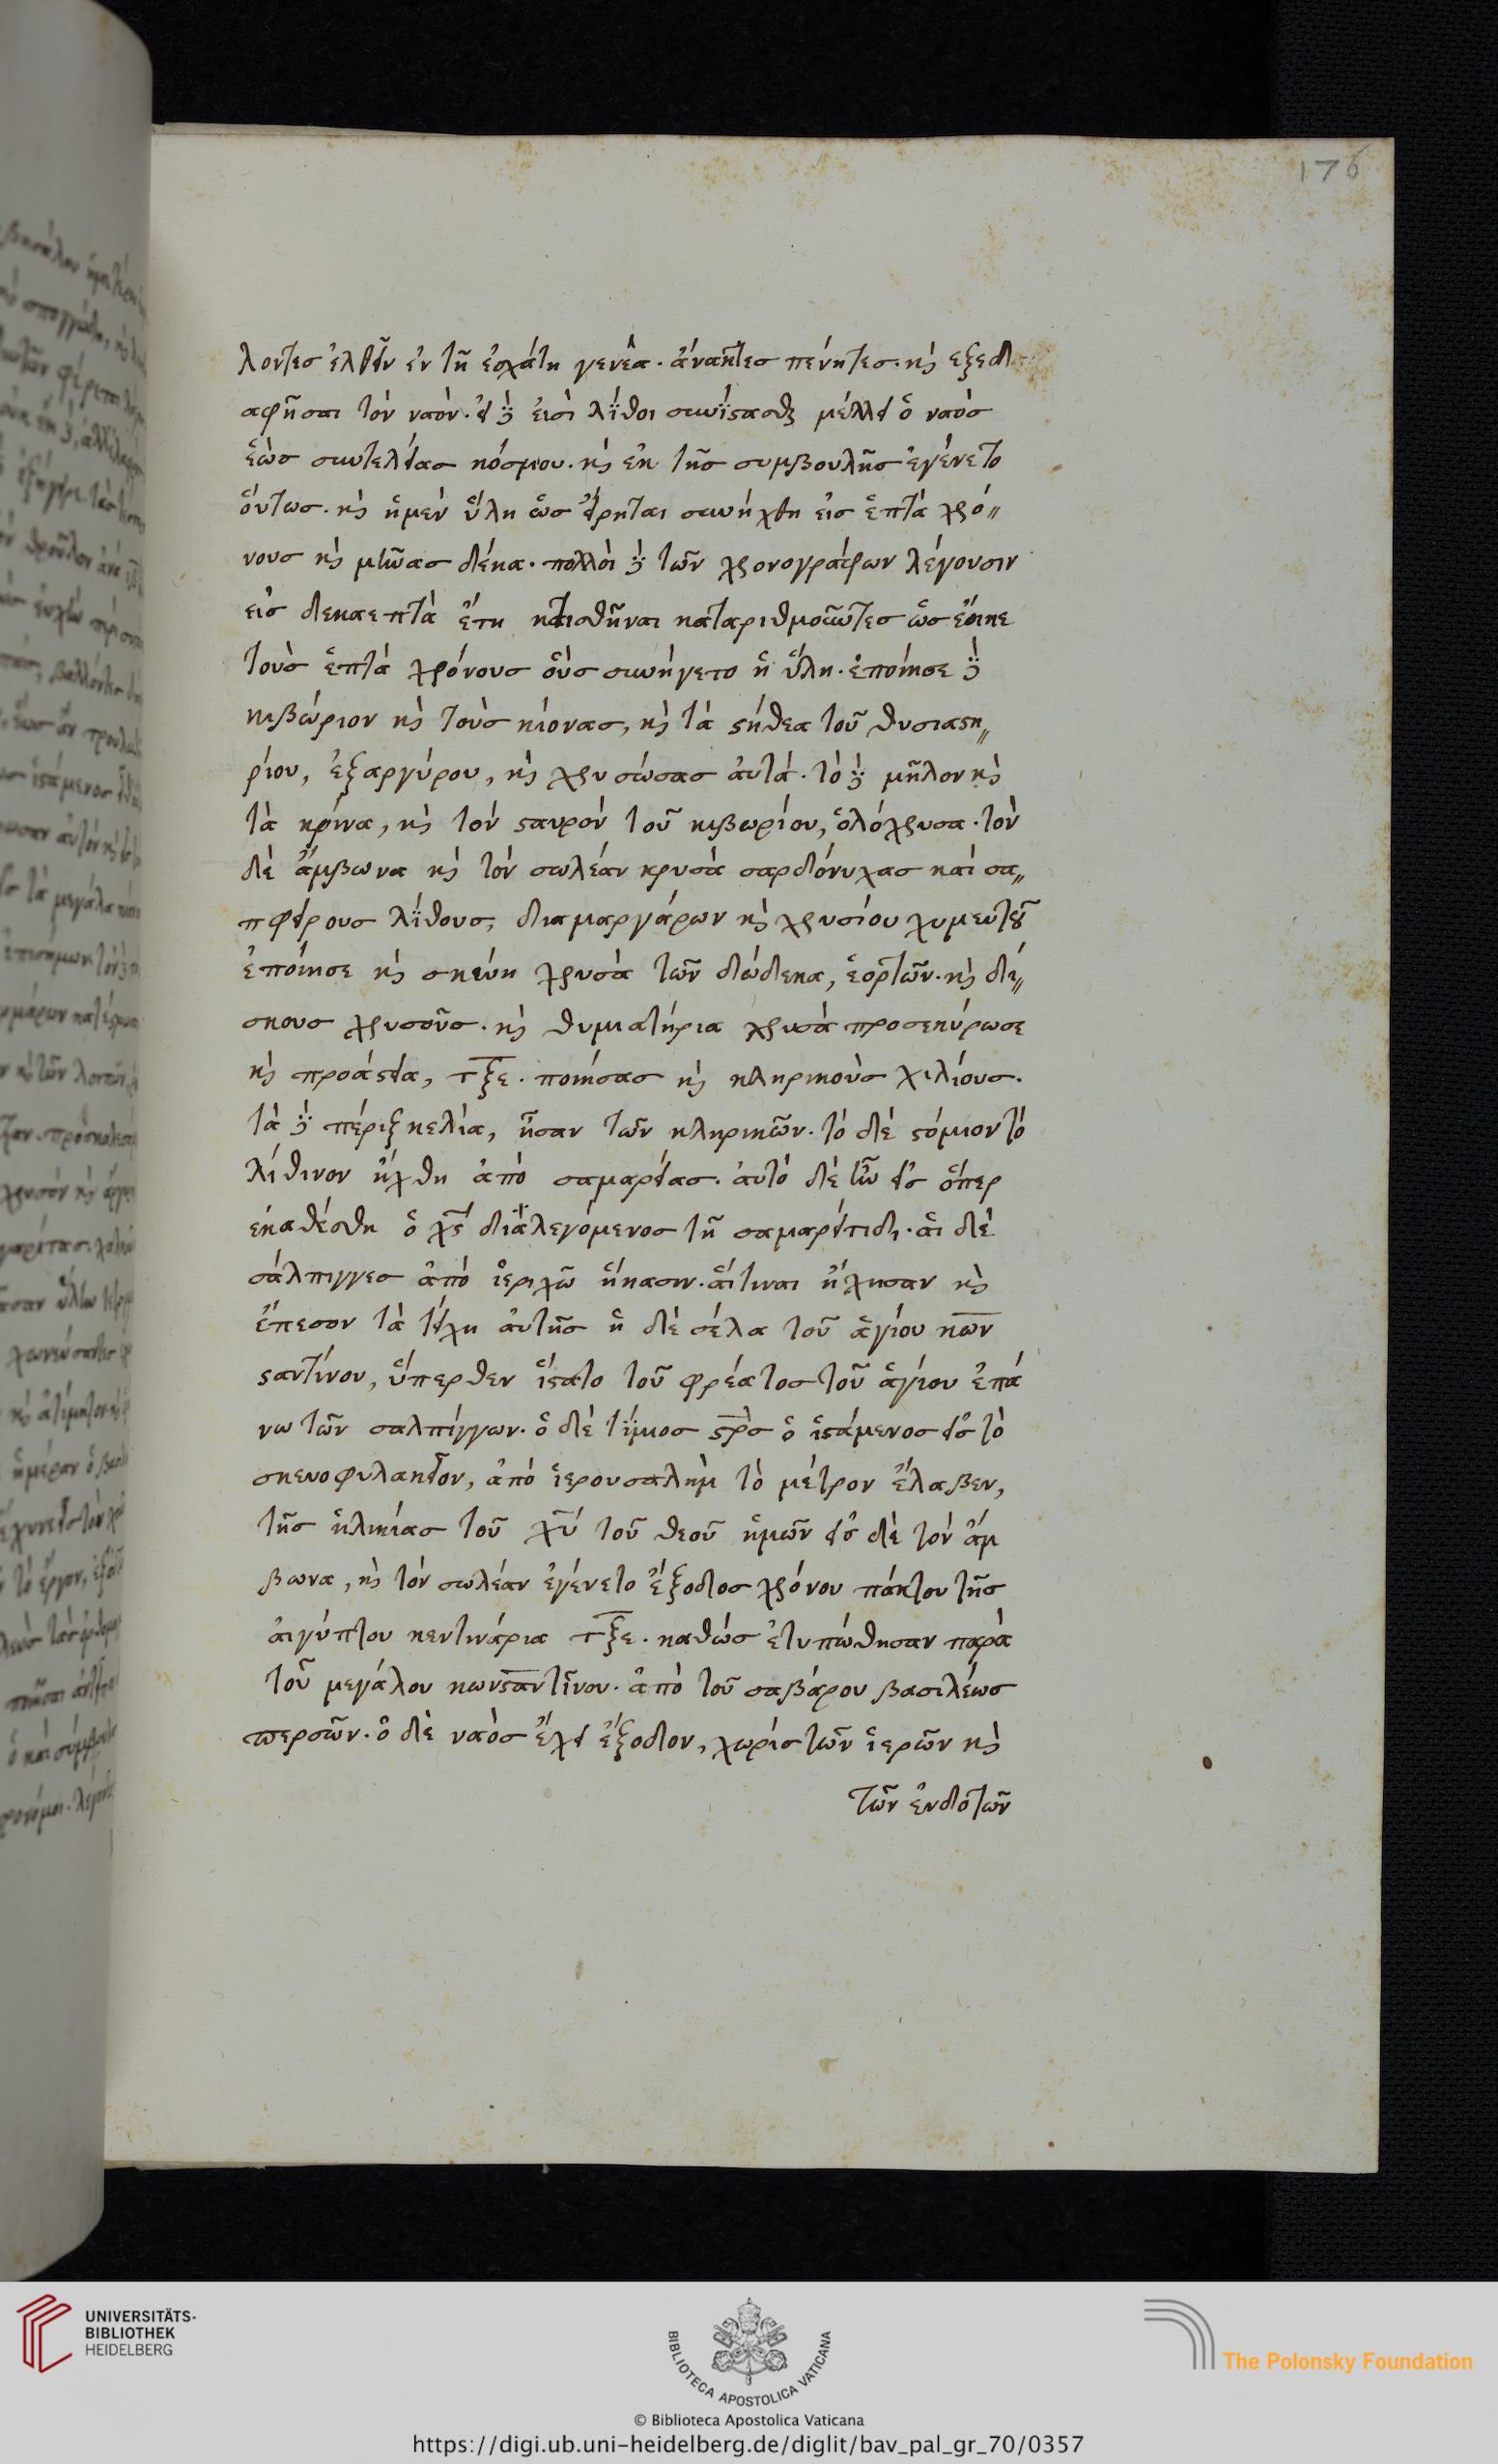 176
λοντες ἐλθεῖν ἐν τῆ ἐσχάτη γενεᾶ. ἄνακτες πένητες. κὶ εξεδ
αφῆσαι τὸν ναὸν. εἰ δέ εἰσὶ λίθοι συνίστασθαι μέλλει ὁ ναὸς
ἕως συντελείας κόσμου. κὶ ἐκ τῆς συμβουλῆς ἐγένετο
ὅυτως. κὶ ἡμὲν ὕλη ὡς εἴρηται συνήχθη εἰς ἑπτὰ χρό〃
νους κὶ μῆνας δέκα. πολλοὶ δέ τῶν χρονογράφων λέγουσιν
εἰς δεκαεπτὰ ἔτη κτισθῆναι καταριθμοῦντες ὡς ἔοικε
τοὺς ἑπτὰ χρόνους οὓς συνήγετο ἡ ὕλη. ἐποίησε δέ
κιβώριον κὶ τοὺς κίονας, κὶ τὰ στήθεα τοῦ θυσιαστη〃
ρίου, ἐξαργύρου, κὶ χρυσώσας ἀυτά. τὸ δέ μῆλον κὶ
τὰ κρίνα, κὶ τὸν σταυρὸν τοῦ κιβωρίου, ὁλόχρυσα. τὸν
δὲ ἄμβωνα κὶ τὸν σωλέαν κρυσὰ σαρδόνυχας καὶ σα〃
πφείρους λίθους, διαμαργάρων κὶ χρυσίου χυμευτοῦ
ἐποίησε κὶ σκεύη χρυσὰ τῶν δώδεκα, ἑορτῶν. κὶ δί〃
σκους χρυσοῦς. κὶ θυμιατήρια χρυσὰ προσεκύρωσε
κὶ προάστεια, τξε. ποιήσας κὶ κληρικοὺς χιλίους.
τὰ δέ πέριξ κελία, ἦσαν τῶν κληρικῶν. τὸ δὲ στόμιον τὸ
λίθινον ἤχθη ἀπὸ σαμαρείας. ἀυτὸ δὲ ἦν εἰς ὅπερ
εκαθέσθη ὁ χς διαλεγόμενος τῆ σαμαρείτιδι. ἁι δὲ
σάλπιγγες ἀπὸ ἱεριχῶ ἥκασιν. ἅιτιναι ἤχησαν κὶ
ἔπεσον τὰ τείχη ἀυτῆς ἡ δὲ σέλα τοῦ ἁγίου κων
σταντίνου, ὕπερθεν ἵστατο τοῦ φρέατος τοῦ ἁγίου ἐπά
νω τῶν σαλπίγγων. ὁ δὲ τίμιος στρς ὁ ἱστάμενος εἰς τὸ
σκευοφυλακεῖον, ἀπὸ ἱερουσαλὴμ τὸ μέτρον ἔλαβεν,
τῆς ἡλικίας τοῦ χυ τοῦ θεοῦ ἡμῶν εἰς δὲ τὸν ἄμ
βωνα, κὶ τὸν σωλέαν ἐγένετο ἔξοδος χρόνου πάκτου τῆς
ἀιγύπτου κεντινάρια τξε. καθὼς ἐτυπώθησαν παρὰ
τοῦ μεγάλου κωνσταντίνου. ἀπὸ τοῦ σαβάρου βασιλέως
περσῶν. ὁ δὲ ναὸς ἔχει ἔξοδον, χωρὶς τῶν ἱερῶν κὶ
τῶν ἐνδοτῶν
UNIVERSITÄTS-
BIBLIOTHEK
HEIDELBERG
BIBLIOTECA APOSTOLICA VATICANA
The Polonsky Foundation
© Biblioteca Apostolica Vaticana
https://digi.ub.uni-heidelberg.de/diglit/bav_pal_gr_70/0357